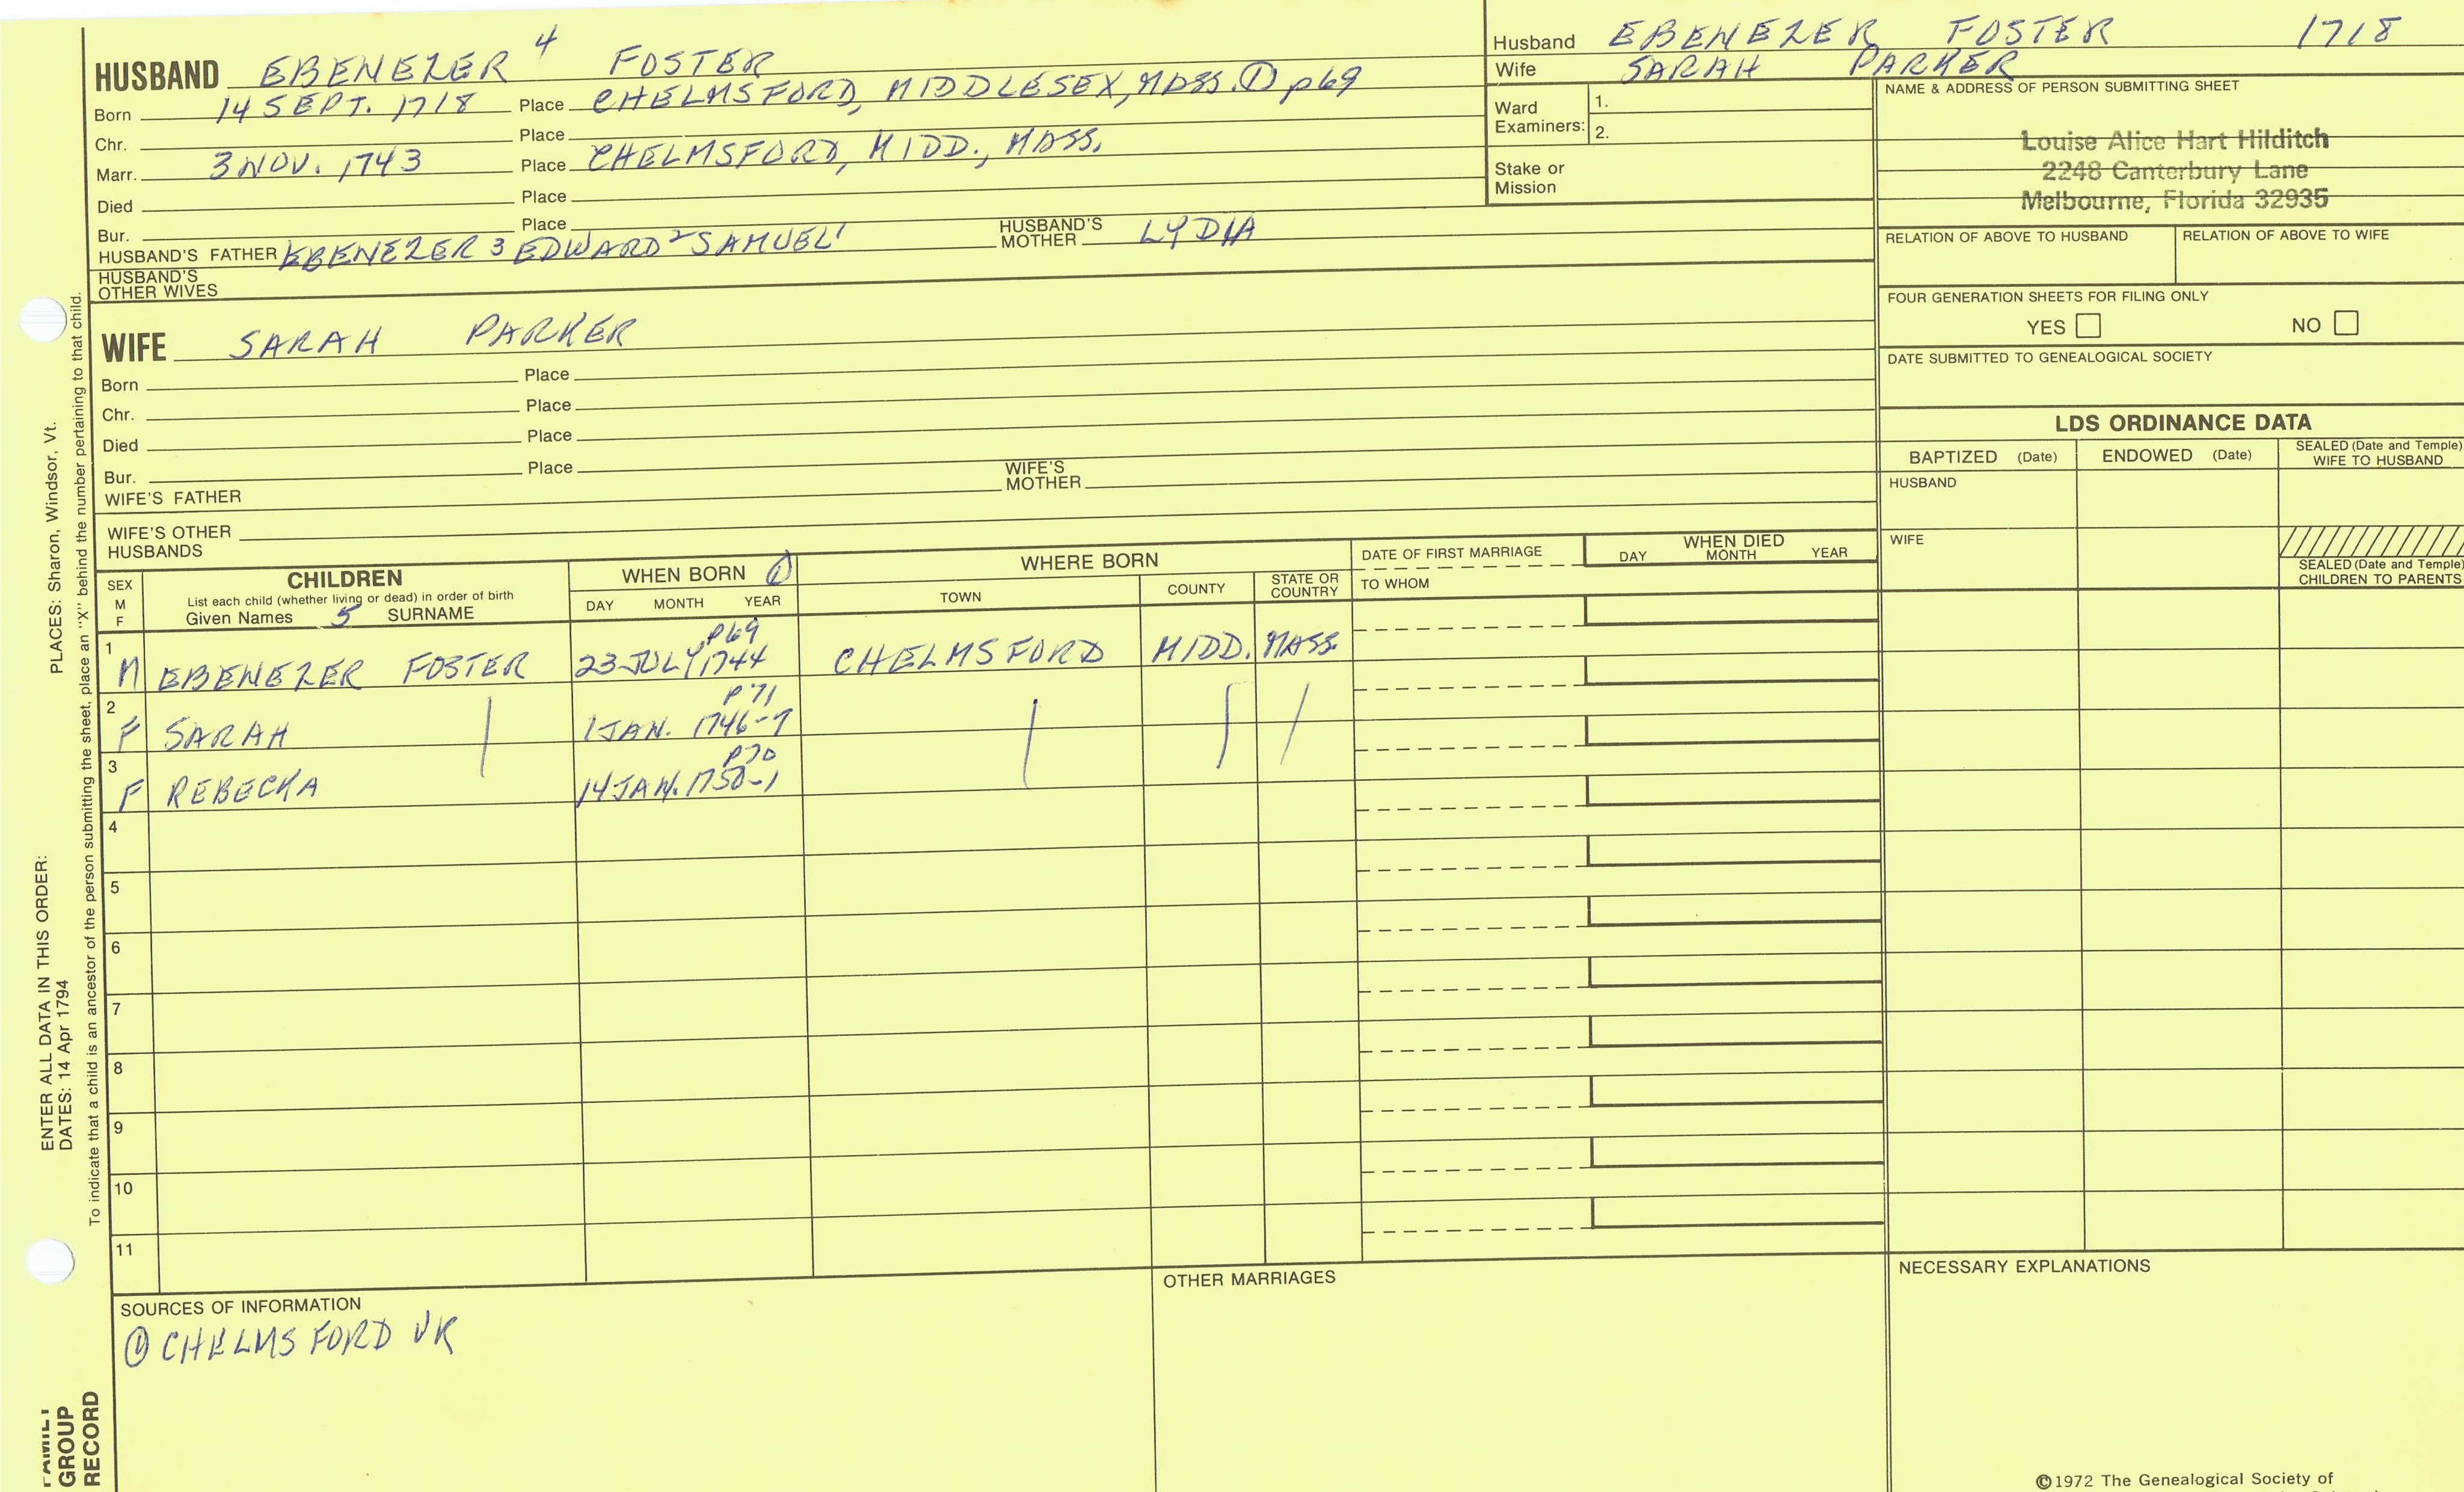 HUSBAND EBENEZER 4 FOSTER
Born 14 SEPT. 1718 Place CHELMSFORD, MIDDLESEX, MASS. ① p69
Chr. Place
Marr. 3 NOV. 1743 Place CHELMSFORD, MIDD., MASS.
Died Place
Bur. Place
HUSBAND'S FATHER EBENEZER 3 EDWARD 2 SAMUEL 1 HUSBAND'S MOTHER LYDIA
HUSBAND'S OTHER WIVES
Husband EBENEZER FOSTER 1718
Wife SARAH PARKER
Ward Examiners: 1.
2.
Stake or Mission
NAME & ADDRESS OF PERSON SUBMITTING SHEET
Louise Alice Hart Hilditch
2248 Canterbury Lane
Melbourne, Florida 32935
RELATION OF ABOVE TO HUSBAND RELATION OF ABOVE TO WIFE
FOUR GENERATION SHEETS FOR FILING ONLY
YES NO
DATE SUBMITTED TO GENEALOGICAL SOCIETY
WIFE SARAH PARKER
Born Place
Chr. Place
Died Place
Bur. Place
WIFE'S FATHER WIFE'S MOTHER
WIFE'S OTHER HUSBANDS
LDS ORDINANCE DATA
BAPTIZED (Date) ENDOWED (Date) SEALED (Date and Temple) WIFE TO HUSBAND
HUSBAND
WIFE
SEALED (Date and Temple) CHILDREN TO PARENTS
SEX M F
CHILDREN
List each child (whether living or dead) in order of birth
Given Names 5 SURNAME
WHEN BORN ①
DAY MONTH YEAR
WHERE BORN
TOWN COUNTY STATE OR COUNTRY
DATE OF FIRST MARRIAGE
TO WHOM
WHEN DIED
DAY MONTH YEAR
1 M EBENEZER FOSTER p69 23 JULY 1744 CHELMSFORD MIDD. MASS.
2 F SARAH p71 1 JAN. 1746-7
3 F REBECKA p70 14 JAN. 1750-1
4
5
6
7
8
9
10
11
SOURCES OF INFORMATION
① CHELMSFORD VR
OTHER MARRIAGES
NECESSARY EXPLANATIONS
©1972 The Genealogical Society of
ENTER ALL DATA IN THIS ORDER:
DATES: 14 Apr 1794 PLACES: Sharon, Windsor, Vt.
To indicate that a child is an ancestor of the person submitting the sheet, place an "X" behind the number pertaining to that child.
FAMILY
GROUP
RECORD